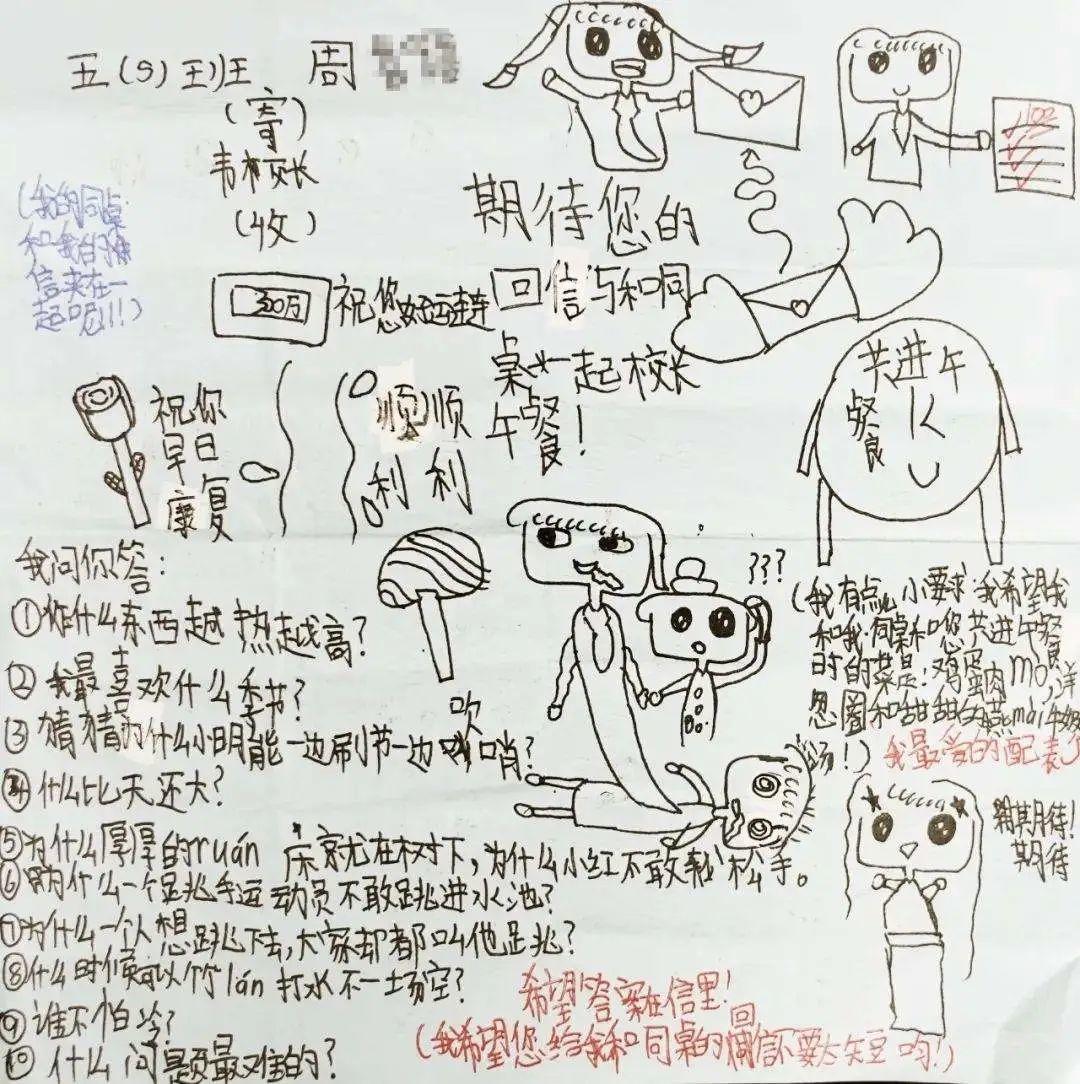 五(9)班 周
(寄)
韦校长
(收)
(我的同桌
和我的
信夹在一
起呢!!!)
期待您的
回信与和同
桌一起校长
午餐!
300万
祝您好运连连
祝你
早日
康复
顺顺
利利
共进午
餐
100
我问你答:
①什么东西越热越高?
②我最喜欢什么季节?
③猜猜为什么小明能一边刷牙一边吹哨?
④什么比天还大?
⑤为什么厚厚的ruán床就在树下,为什么小红不敢松手。
⑥为什么一个跳手运动员不敢跳进水池?
⑦为什么一个人想跳下去,大家却都叫他跳?
⑧什么时候可以竹lán打水不一场空?
⑨谁不怕冷?
⑩什么问题最难的?
???
(我有点小要求:我希望我
和我同桌和您共进午餐
时的菜是:鸡蛋肉mó,洋
忽圈和甜甜的燕mài牛奶
汤!)
我最爱的配表
期期待!
期待
希望答案在信里!
(我希望您给我和同桌的回信不要太短哟!)